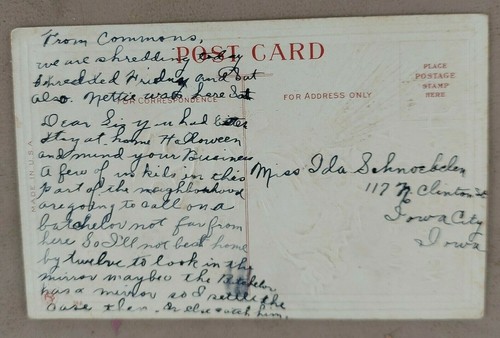 From Commons,
we are shredding today
shredded Friday and Sat
also. Nettie was here Sat
POST CARD
PLACE
POSTAGE
STAMP
HERE
FOR CORRESPONDENCE
FOR ADDRESS ONLY
MADE IN U.S.A.
Dear Sis you had
stay at home Halloween
and mind your Business
A few of us kids in this
part of the neighborhood
are going to call on a
batchelor not far from
here So I'll not be at home
by twelve to look in the
mirror maybee the Batchelor
has a mirror so I settle the
case then. or else catch him.
Miss Ida Schnoebelen
117 N Clinton St
Iowa City
Iowa